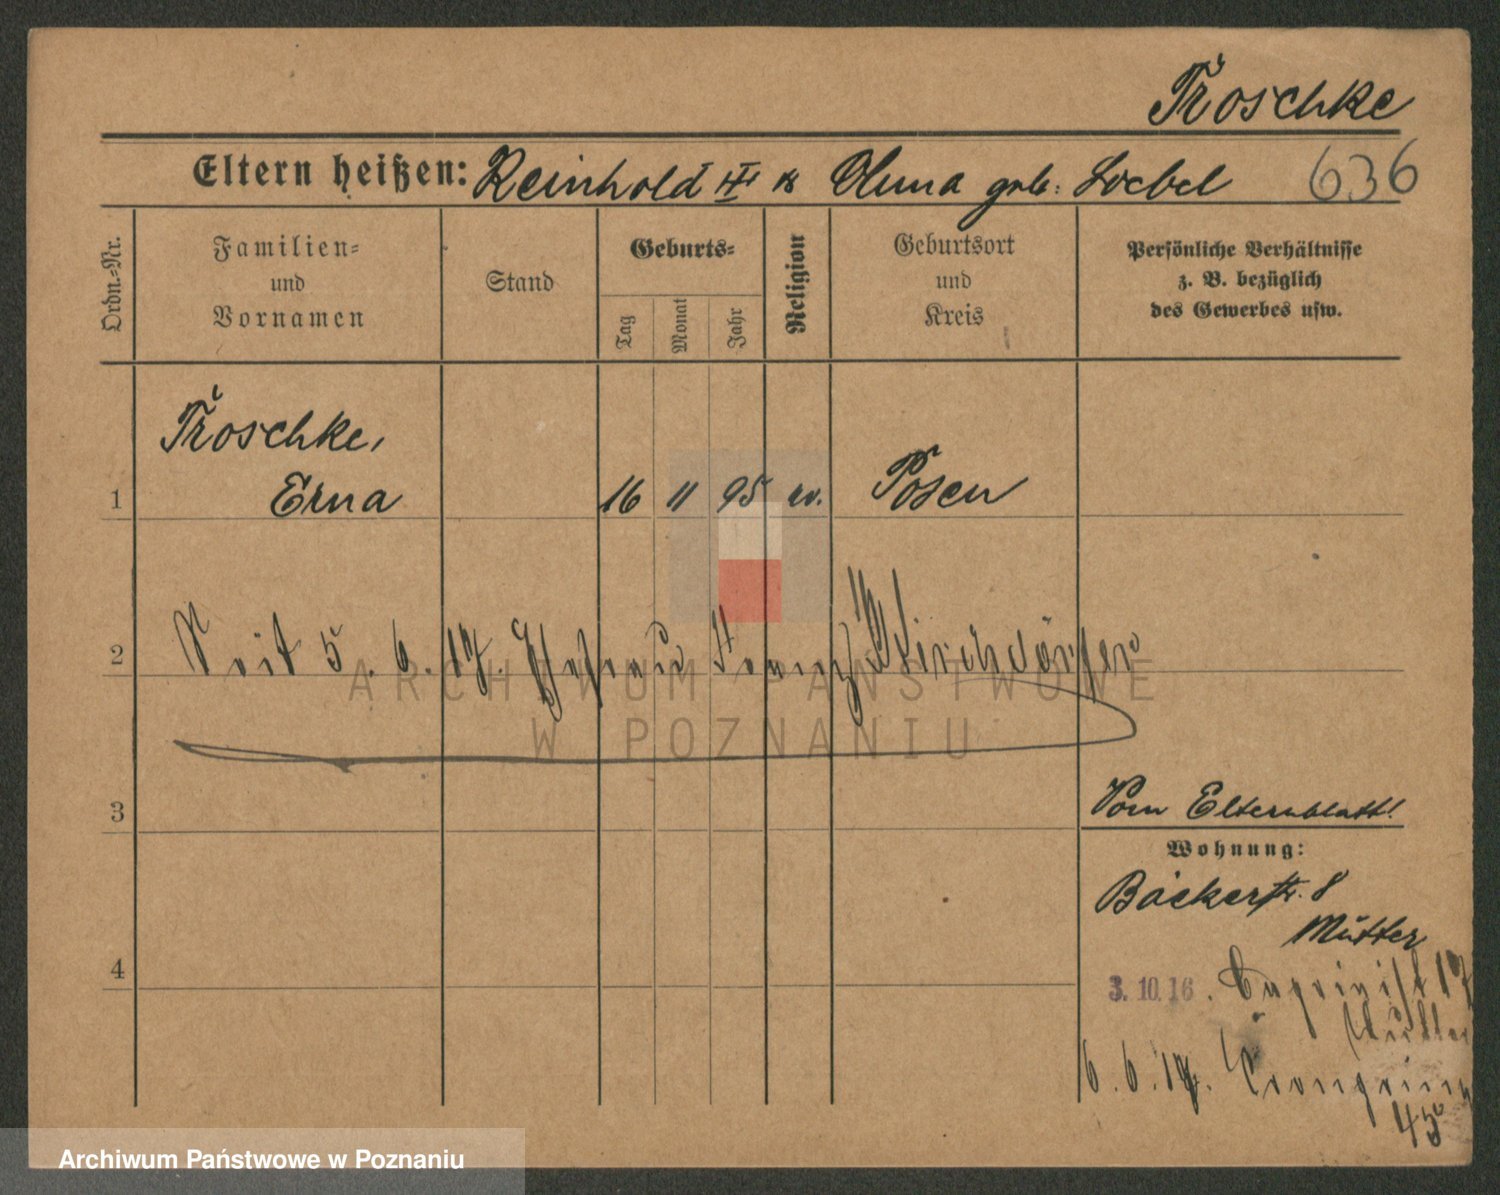 Troschke
Eltern heißen: Reinhold III & Olma geb: Loebel 636
Ordn.-Nr.
Familien-
und
Vornamen
Stand
Geburts-
Tag
Monat
Jahr
Religion
Geburtsort
und
Kreis
Persönliche Verhältnisse
z. B. bezüglich
des Gewerbes usw.
Troschke,
1 Erna 16 11 95 ev. Posen
2 Seit 5.6.17. Ehefrau Franz Kirchdörfer
ARCHIWUM PAŃSTWOWE
W POZNANIU
3 Vom Elternblatt!
Wohnung:
Bäckerstr. 8
Mutter
4
3.10.16. 17
Mutter
6.6.17. Kronprinz
45
Archiwum Państwowe w Poznaniu